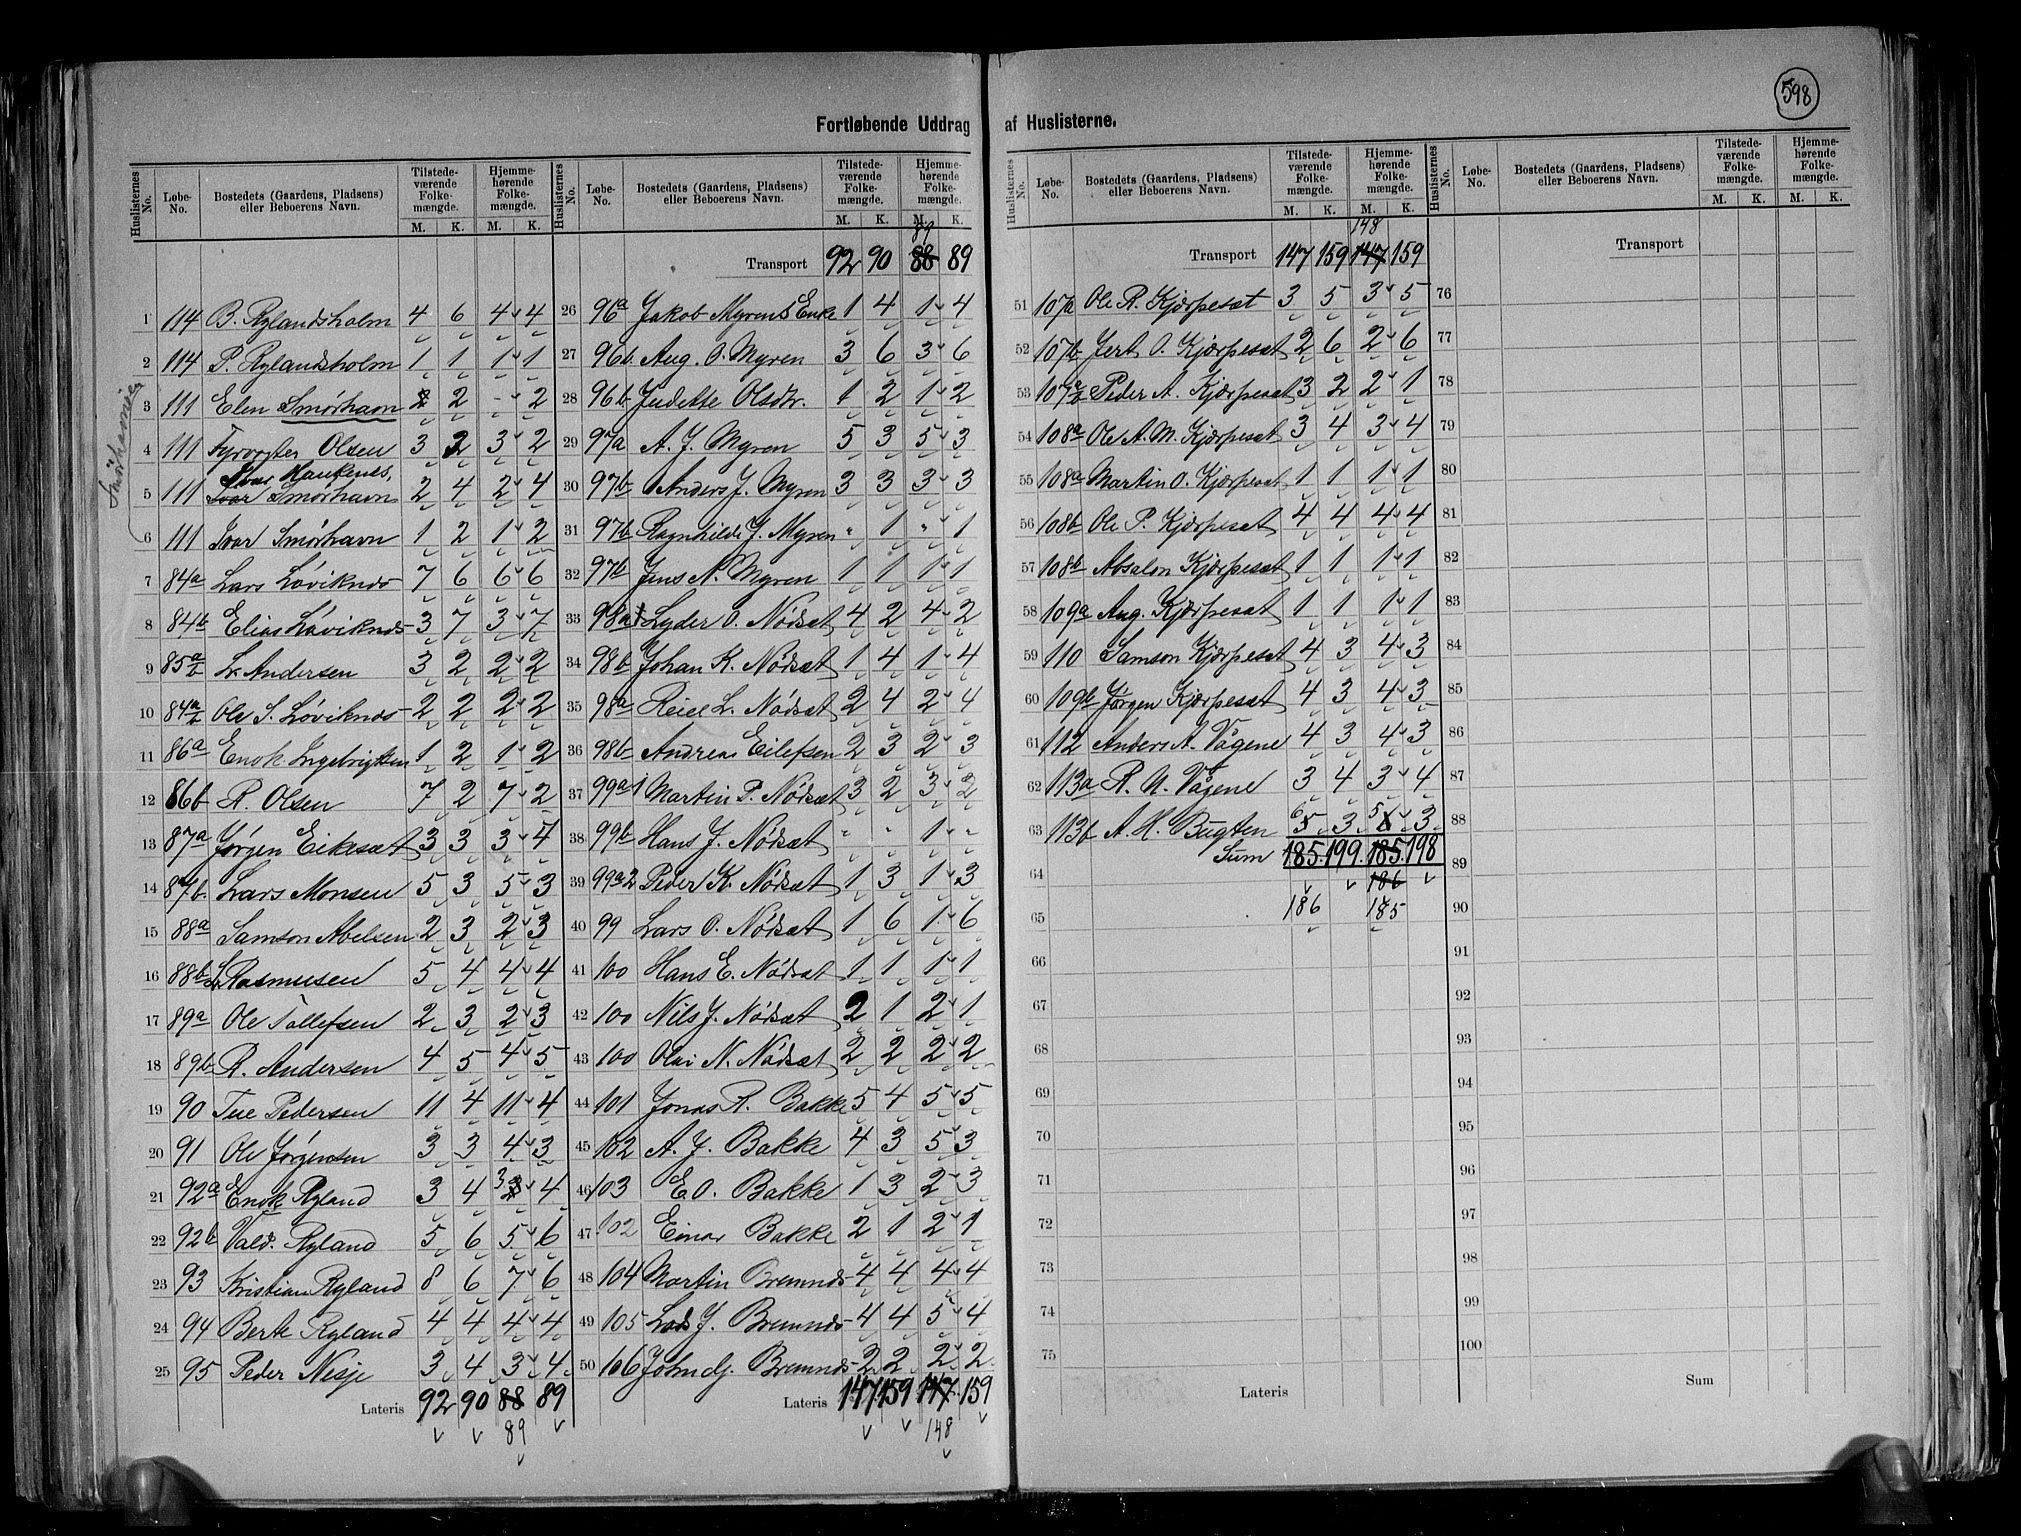 598
Fortløbende Uddrag af Huslisterne.
Huslisternes No. Løbe-No. Bostedets (Gaardens, Pladsens) eller Beboerens Navn. Tilstedeværende Folkemængde. Hjemmehørende Folkemængde.
M. K. M. K.
1 114 B. Rylandsholm 4 6 4 4
2 114 P. Rylandsholm 1 1 1 1
3 111 Elen Smørhavn 2 2 - 2
4 111 Fyrvogter Olsen 3 2 3 2
Ivar Haukenes,
5 111 Ivar Smørhavn 2 4 2 4
6 111 Ivar Smørhavn 1 2 1 2
7 84a Lars Løviknes 7 6 6 6
8 84b Elias Løviknes 3 7 3 7
9 85a/b L. Andersen 3 2 2 2
10 84a/b Ole S. Løviknes 2 2 2 2
11 86a Enok Ingebrigtsen 1 2 1 2
12 86b R. Olsen 7 2 7 2
13 87a Jørgen Eikesæt 3 3 3 4
14 87b. Lars Monsen 5 3 5 3
15 88a Samson Abelsen 2 3 2 3
16 88b L Rasmusen 5 4 4 4
17 89a Ole Tollefsen 2 3 2 3
18 89b R. Andersen 4 5 4 5
19 90 Tue Pedersen 11 4 11 4
20 91 Ole Jørgensen 3 3 4 3
21 92a Enok Ryland 3 4 3 4
22 92b Vald. Ryland 5 6 5 6
23 93 Kristian Ryland 8 6 7 6
24 94 Berte Ryland 4 4 4 4
25 95 Peder Nesje 3 4 3 4
Lateris 92 90 88 89
89
Huslisternes No. Løbe-No. Bostedets (Gaardens, Pladsens) eller Beboerens Navn. Tilstedeværende Folkemængde. Hjemmehørende Folkemængde.
M. K. M. K.
89
Transport 92 90 88 89
26 96a Jakob Myrens Enke 1 4 1 4
27 96b Aug. O. Myren 3 6 3 6
28 96b Judette Olsdtr. 1 2 1 2
29 97a A. J. Myren 5 3 5 3
30 97b Anders J. Myren 3 3 3 3
31 97b Ragnhilde J. Myren " 1 " 1
32 97b Jens N. Myren 1 1 1 1
33 98a Lyder O. Nødsæt 4 2 4 2
34 98b Johan K. Nødsæt 1 4 1 4
35 98a Reiel L. Nødsæt 2 4 2 4
36 98b Andreas Eilefsen 2 3 2 3
37 99a1 Martin P. Nødsæt 3 2 3 2
38 99b Hans J. Nødsæt " " 1 "
39 99a2 Peder K. Nødsæt 1 3 1 3
40 99 Lars O. Nødsæt 1 6 1 6
41 100 Hans E. Nødsæt 1 1 1 1
42 100 Nils J. Nødsæt 2 1 2 1
43 100 Olai N. Nødsæt 2 2 2 2
44 101 Jonas R. Bakke 5 4 5 5
45 102 A. J. Bakke 4 3 5 3
46 103 E. O. Bakke 1 3 2 3
47 102 Einar Bakke 2 1 2 1
48 104 Martin Bremnes 4 4 4 4
49 105 Lods J. Bremnes 4 4 5 4
50 106 John Bremnes 2 2 2 2
Lateris 147 159 147 159
148
Huslisternes No. Løbe-No. Bostedets (Gaardens, Pladsens) eller Beboerens Navn. Tilstedeværende Folkemængde. Hjemmehørende Folkemængde.
M. K. M. K.
148
Transport 147 159 147 159
51 107a Ole R. Kjørpesæt 3 5 3 5
52 107b Jert O. Kjørpesæt 2 6 2 6
53 107a/b Peder A. Kjørpesæt 3 2 2 1
54 108a Ole A. M. Kjørpesæt 3 4 3 4
55 108a Martin O. Kjørpesæt 1 1 1 1
56 108b Ole P. Kjørpesæt 4 4 4 4
57 108b Absalon Kjørpesæt 1 1 1 1
58 109a Aug. Kjørpesæt 1 1 1 1
59 110 Samson Kjørpesæt 4 3 4 3
60 109b Jørgen Kjørpesæt 4 3 4 3
61 112 Anders A. Vågene 4 3 4 3
62 113a R. N. Vågene 3 4 3 4
63 113b A. H. Bugten 6 5 3 5 6 3
Sum 185 199 185 198
64 186
65 186 185
66
67
68
69
70
71
72
73
74
75
Lateris
Huslisternes No. Løbe-No. Bostedets (Gaardens, Pladsens) eller Beboerens Navn. Tilstedeværende Folkemængde. Hjemmehørende Folkemængde.
M. K. M. K.
Transport
76
77
78
79
80
81
82
83
84
85
86
87
88
89
90
91
92
93
94
95
96
97
98
99
100
Sum